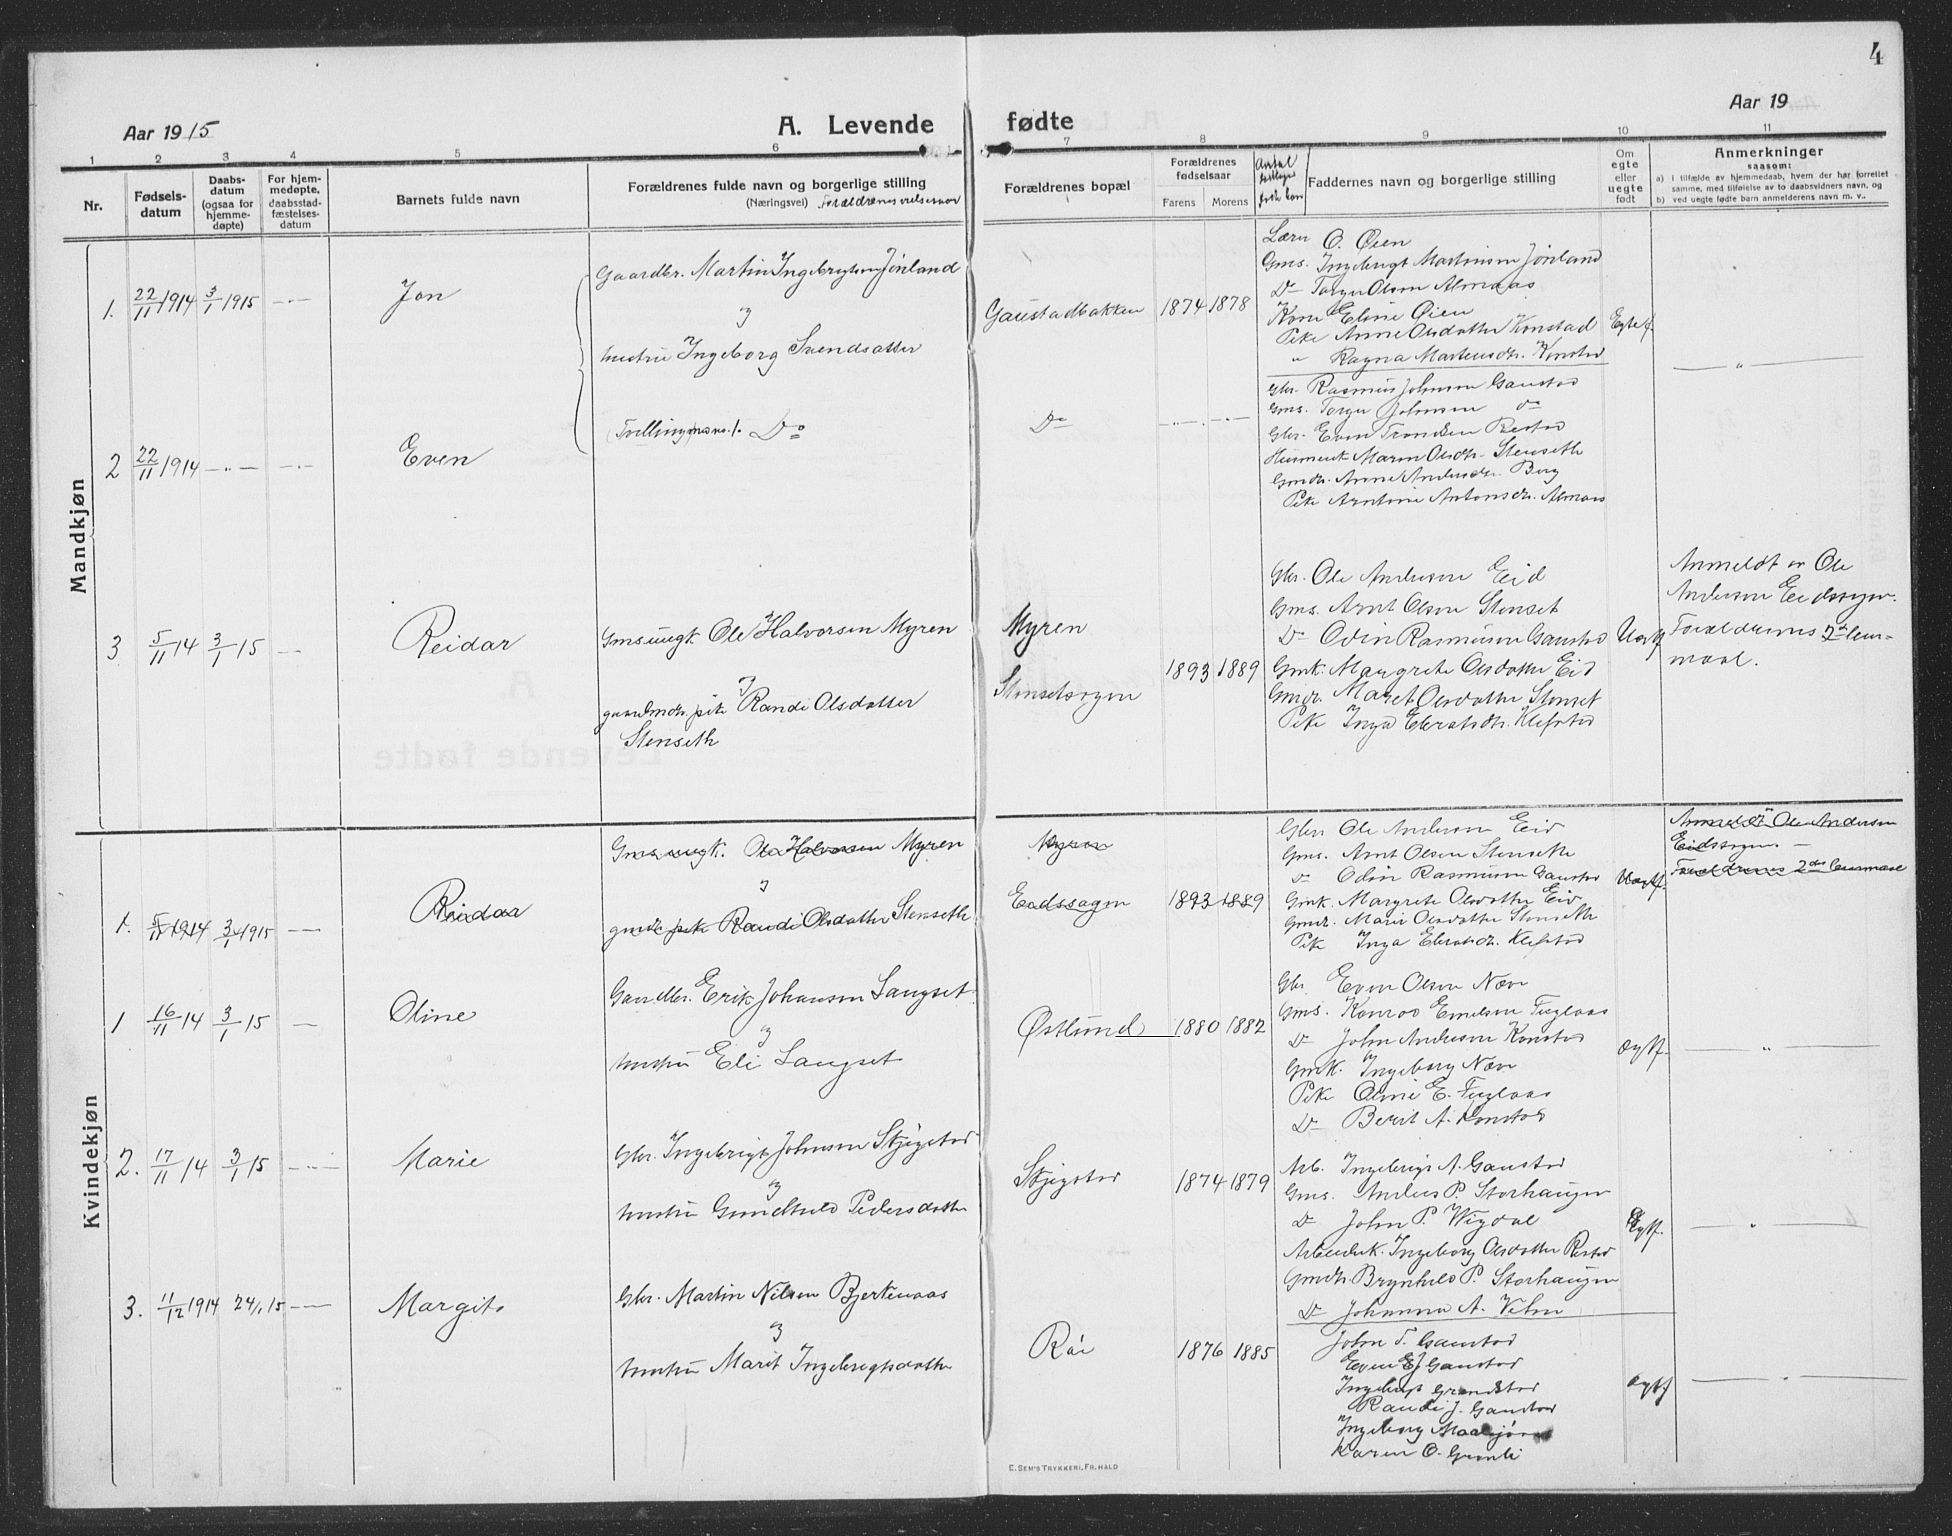 4
Aar 1915
A. Levende fødte
Aar 19
1 2 3 4 5 6 7 8 9 10 11
Nr.
Fødsels-
datum
Daabs-
datum
(ogsaa for
hjemme-
døpte)
For hjem-
medøpte,
daabsstad-
fæstelses-
datum
Barnets fulde navn
Forældrenes fulde navn og borgerlige stilling
(Næringsvei)
Forældrenes bopæl
Forældrenes
fødselsaar
Farens Morens
Antal
Faddernes navn og borgerlige stilling
Om
egte
eller
uegte
født
Anmerkninger
saasom:
a) i tilfælde av hjemmedaab, hvem der har forrettet
samme, med tilføielse av to daabsvidners navn, og
b) ved uegte fødte barn anmelderens navn m. v..
Mandkjøn
1. 22/11 1914 3/1 1915 — " —
Jon
Gaardbr. Martin Ingebrigtsen Jønland
og
hustru Ingeborg Svendsdatter
Gaustadbakken
1874 1878
Lærer O. Øien
Gms. Ingebrigt Martinsen Jønland
Do Torger Olsen Almaas
Kone Eline Øien
Pike Anne Olsdatter Konstad
" Ragna Martensdr. Konstad
Egtef.
— " —
2 22/11 1914 — " — — " —
Even
Do
Do
— " —
Gbr. Rasmus Johnsen Gaustad
Gms. Torger Johnsen do
Gbr. Even Trondsen Restad
Husmenk. Maren Olsdtr. Stenseth
Gmdr. Anne Andersdr. Berg
Pike Arntine Antonsdr. Almaas
3 5/11 14 3/1 15 —
Reidar
Gms ungk Ole Halvorsen Myren
og
gaardmdr. pike Randi Olsdatter
Stenseth
Myren
Stensetsøgen
1893 1889
Gbr. Ole Andersen Eid
Gms. Arnt Olsen Stenset
Do Odin Rasmusen Gaustad
Gmk. Margrete Olsdatter Eid
Gmdr. Maret Olsdatter Stenset
Pike Inga Ebratsdr. Klefstad
Uegtf
Anmeldt av Ole
Andersen Eidssøgen.
Forældrenes 2det leier-
maal.
Kvindekjøn
1. 5/11 1914 3/1 1915 —
Reidar
Gms. ungk. Ole Halvorsen Myren
og
gmdr. pike Randi Olsdatter Stenseth
Myren
Eidssøgen
1893 1889
Gbr. Ole Andersen Eid
Gms. Arnt Olsen Stenseth
Do Odin Rasmusen Gaustad
Gmk. Margrete Olsdatter Eid
Gmdr. Marit Olsdatter Stenseth
Pike Inga Ebratsdr. Klefstad
Uegtf.
Anmeldt Ole Andersen
Eidssøgen —
Forældrenes 2det leiermaal
1 16/11 14 3/1 15 —
Oline
Gaardbr. Erik Johansen Langset
og
hustru Eli Langset
Østlund
1880 1882
Gbr. Even Olsen Næve
Gms. Konrad Emilsen Fuglaas
Do John Andersen Konstad
Gmk. Ingeborg Næve
Pike Oline E. Fuglaas
Do Berit A. Konstad
ægtf.
— " —
2. 17/11 14 3/1 15 — " —
Marie
Gbr. Ingebrigt Johnsen Skjegstad
og
hustru Gunhild Pedersdatter
Skjegstad
1874 1879
Arb. Ingebrigt A. Gaustad
Gms. Anders P. Storhaugen
Do John P. Wigdal
Arbeiderk. Ingeborg Olsdatter Restad
Gmdr. Brynhild P. Storhaugen
Do Johanna A.
Egtf.
— " —
3. 11/12 1914 24/1 15 —
Margit
Gbr. Martin Nilsen Bjerkenaas
og
hustru Marit Ingebrigtsdatter
Røe
1876 1885
John T. Gaustad
Even E. Gaustad
Ingebrigt Grindstad
Randi J. Gaustad
Ingeborg
Karen O. Grønli
ægtf
— " —
E. SEM'S TRYKKERI, FR.HALD